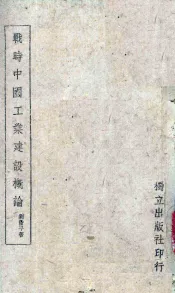 戰時中國工業建設概論
獨立出版社印行